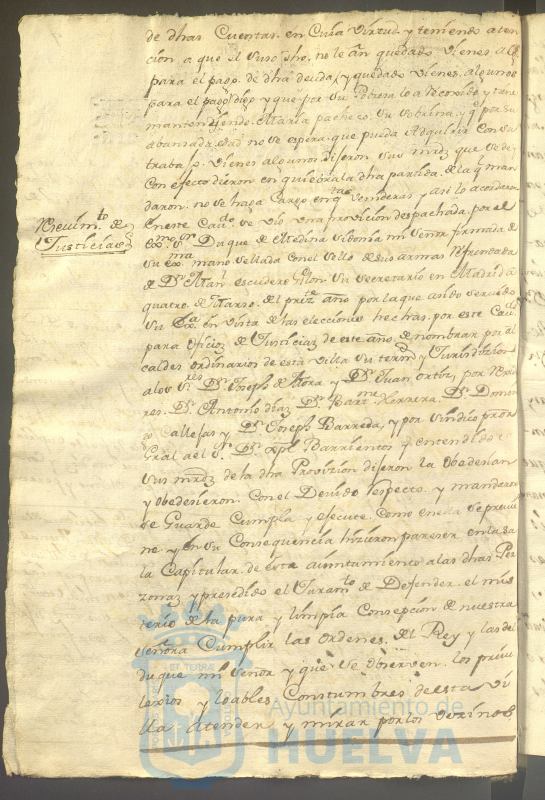 de dhas Cuentas. en Cuia virtud. y teniendo aten
cion a que el suso dho. no le an quedado vienes al
para el pago. de dha deuda, y quedado vienes. algunos
para el pago dijo y que por su pobresa lo a recoxido y tiene
manteniendo. Maria pacheco. su sobrina, y q por su
abansada edad no se espera. que pueda adquirir con su
trabajo. vienes algunos dijeron sus mrdz que se de
Con efecto dieron en quiebra la dha partida. de la q man
daron. no se haga cargo en q.tas venideras y asi lo acordaron
Reciuim.to de
Justicias
En este Cau.do se vio una provicion despachada. por el
ex.mo s.r Duque de Medina sidonia mi señor firmada de
su ex.ma mano sellada con el sello de sus armas Refrendada
de D.n Man escudero su secretario en Madrid a
quatro. de Marzo. del pres.te año por la que a sido servido
su Ex.a en vista de las elecciones hechas. por este Cau.do
para oficios de Justiciaz de este año. de nombrar por al
caldes ordinarios de esta villa su term.o y Jurisdizion
a los S.res D.n Joseph de Mora y D.n Juan ortiz, por Rexido
res. D.n Antonio diaz D.n Bart.me Herrera. D.n Domin
go Callejas y D.n Joseph Barreda, y por sindico procu
Gral. a el s.r D.n Xpl Barrientos y entendido
sus mrdz de la dha Provizion dijeron la obedesian
y obedesieron. Con el Devido respecto. y mandaron
se Guarde Cumpla y efecute. como en ella se previe
ne y en su Consequencia hizieron pareser en la sa
la Capitular. de este aiuntamiento a las dhas Per
zonaz y presedido el Juram.to de Defender. el mis
terio de la pura y limpia Consepcion de nuestra
señora Cumplir las ordenes. del Rey y las del
duque mi señor y que se observen. los privi
lexios y loables. Constumbres de esta vi
lla atender y mirar por los vezinos
Ayuntamiento de
HUELVA